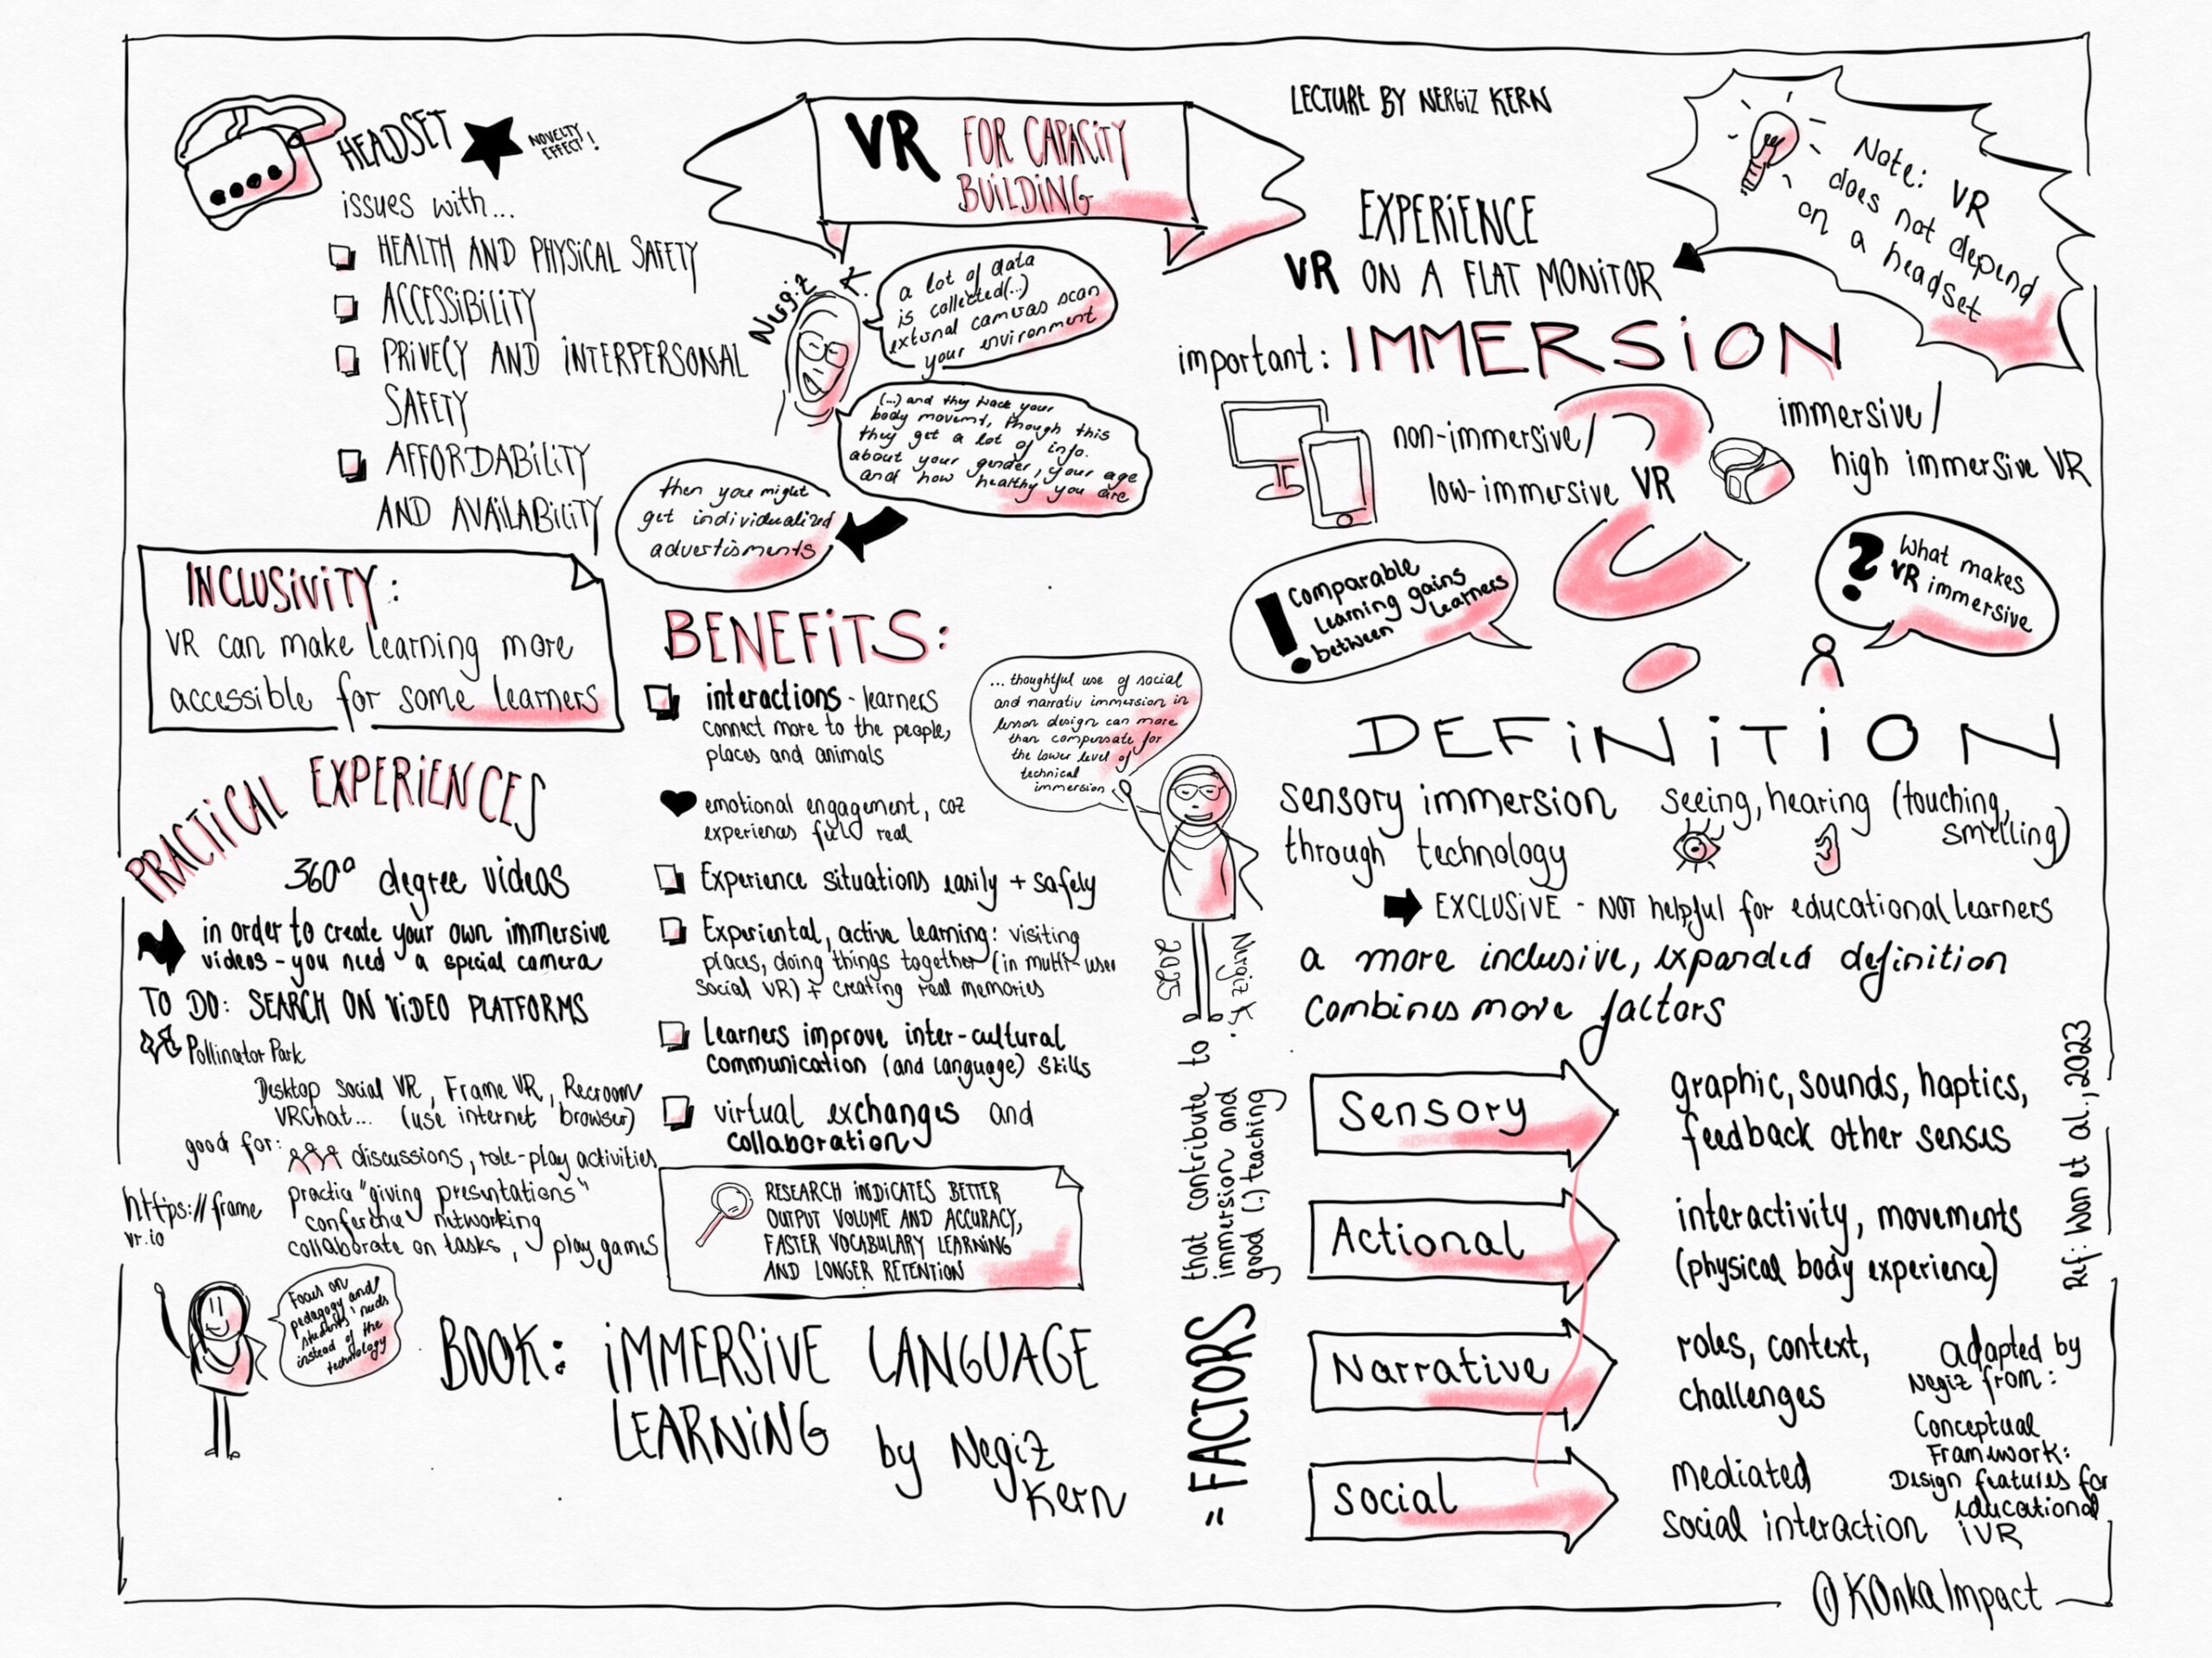 HEADSET
NOVELTY
EFFECT!
issues with...
HEALTH AND PHYSICAL SAFETY
ACCESSIBILITY
PRIVECY AND INTERPERSONAL
SAFETY
AFFORDABILITY
AND AVAILABILITY
VR FOR CAPACITY
BUILDING
Nergiz K.
a lot of data
is collected(...)
external cameras scan
your environment
(...) and they track your
body movemt, though this
they get a lot of info.
about your gender, your age
and how healthy you are
then you might
get individualized
advertisments
LECTURE BY NERGIZ KERN
Note: VR
does not depend
on a headset
EXPERIENCE
VR ON A FLAT MONITOR
important: IMMERSION
non-immersive/
low-immersive VR
immersive/
high immersive VR
! comparable
learning gains
between learners
? What makes
VR immersive
INCLUSIVITY:
VR can make learning more
accessible for some learners
PRACTICAL EXPERIENCES
360° degree videos
in order to create your own immersive
videos - you need a special camera
TO DO: SEARCH ON VIDEO PLATFORMS
Pollinator Park
Desktop social VR, Frame VR, Recroom
VRChat... (use internet browser)
good for:
discussions, role-play activities
practice "giving presentations"
conference networking
collaborate on tasks, play games
https://frame
vr.io
Focus on
pedagogy and
students' needs
instead of the
technology
BENEFITS:
interactions - learners
connect more to the people,
places and animals
emotional engagement, coz
experiences feel real
Experience situations easily + safely
Experiental, active learning: visiting
places, doing things together (in multi-user
social VR) + creating real memories
Learners improve inter-cultural
communication (and language) skills
virtual exchanges and
collaboration
RESEARCH INDICATES BETTER
OUTPUT VOLUME AND ACCURACY,
FASTER VOCABULARY LEARNING
AND LONGER RETENTION
BOOK: IMMERSIVE LANGUAGE
LEARNING by Negiz
Kern
... thoughtful use of social
and narrativ immersion in
lesson design can more
than compensate for
the lower level of
technical
immersion
Nergiz K.
2025
DEFINITION
sensory immersion
through technology
seeing, hearing (touching,
smelling)
EXCLUSIVE - NOT helpful for educational learners
a more inclusive, expanded definition
combines more factors
= FACTORS that contribute to
immersion and
good (..) teaching
Sensory
graphic, sounds, haptics,
feedback other senses
Actional
interactivity, movements
(physical body experience)
Narrative
roles, context,
challenges
social
mediated
social interaction
Ref: Won et al., 2023
adapted by
Negiz from:
Conceptual
Framework:
Design features for
educational
iVR
@KOnkaImpact